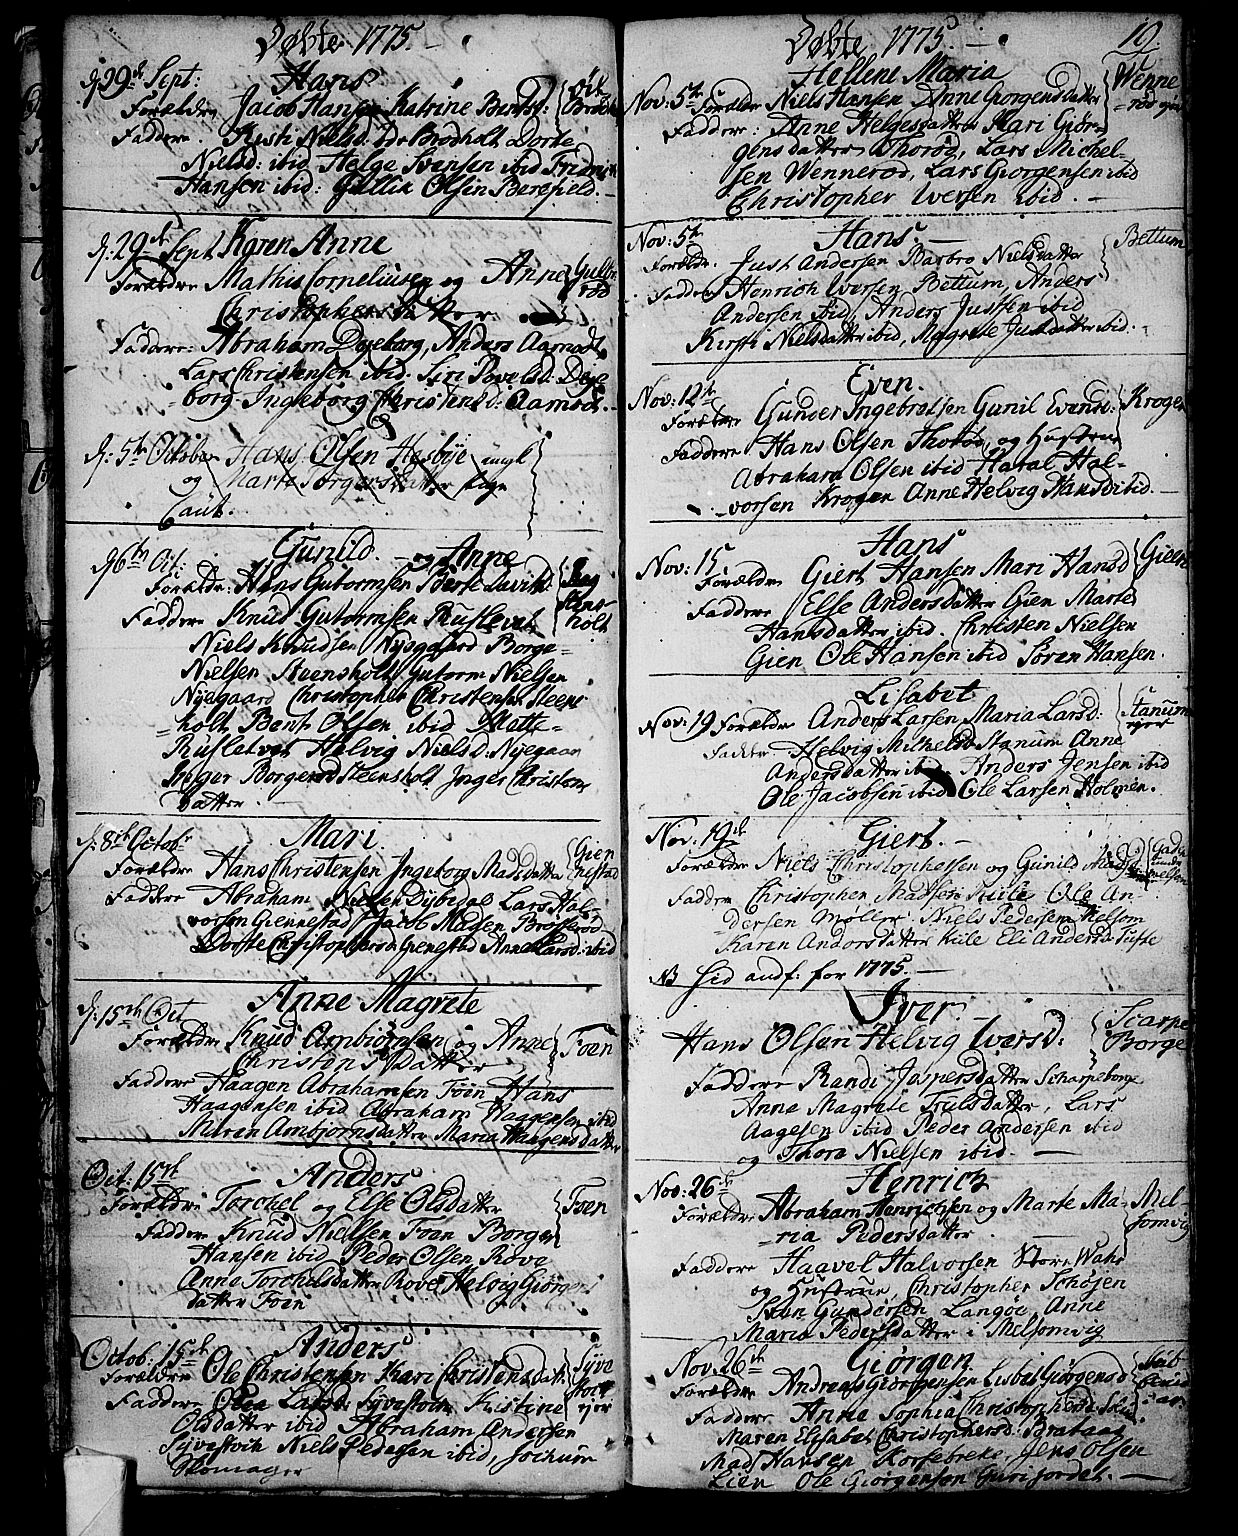 Døbte 1775.
d. 29de Sept: Hans
Forældre Jacob Hansen Katrine Bentsd:
Faddere Kisti Nielsd: Brødholt Dorte
Nielsd: ibid Helge Svensen ibid Fridrich
Hansen ibid: Gullik Olsen Berefield.
d: 29de Sept Karen Anne
Forældre Mathis Corneliusen og Anne Gullerød
Christophersdatter
Faddere: Abraham Dyeborg, Anders Aamodt
Lars Christensen ibid. Siri Povelsd: Dyeborg
Ingeborg Christensd: Aamodt.
d: 5te October Hans Olsen Hesbye ungl
og Marte Torgersdatter
Caut.
d 6te Oct: Gunild. og Anne
Forældre: Hans Gutormsen Berte Lavisd:
Faddere Knud Gutormsen Ruslevat
Niels Knudsen Nyegaard Borge
Nielsen Steensholt Gutorm Nielsen
Nyegaard Christopher Christensen Steensholt
Bent Olsen ibid Mette
Ruslatvet Helvig Nielsd: Nyegaar
Inger Borgersd Steensholt Inger Christens
datter.
d: 8de Octob: Mari
Forældre Hans Christensen Ingeborg Madsdatter Giennestad
Faddere Abraham Nielsen Dybedal Lars Halvorsen
Giennestad Jacob Madsen Brøtterød
Dorte Christophersd: Genestad Anne Larsd: ibid
d: 15de Oct Anne Magrete
Forældre Knud Ambiørnsen og Anne Foen
Christensdatter
Faddere Haagen Abrahamsen Foen Hans
Haagensen ibid Abraham Haagensen ibid
Maren Ambjornsdatter Maria Haagensdatter
Oct. 15de Anders
Forældre Torchel og Else Olsdatter Foen
Faddere Knud Nielsen Foen Borger
Hansen ibid Peder Olsen Rove
Anne Torchelsdatter Rove Helvig Giørgens
datter Foen
Octob: 15de Anders
Forældre Ole Christensen Kari Christensdatt:
Faddere Olea Larsd: Syvestvik Kristine
Olsdatter ibid Abraham Andersen
Syvestvik Niels Pedersen ibid, Jochum
Skomager
Døbte 1775. 19
Hellene Maria
Nov: 5te Forældre Niels Hansen Anne Giorgensdatter Wennerød eyer
Faddere: Anne Helgesdatter Mari Giørgensdatter
Thorød, Lars Michelsen
Wennerød, Lars Giorgensen ibid
Christopher Iversen ibid.
Nov: 5te Hans
Forældre Just Andersen Barbro Nielsdatter Bettum
Faddere Henrich Iversen Bettum, Anders
Andersen ibid, Anders Justsen ibid
Kirsti Nielsdatter ibid, Magrete Justdatter ibid.
Nov: 12te Even.
Forældre Gunder Ingebretsen Gunil Evensd: Krogen
Faddere Hans Olsen Thorød, og Hustrue
Abraham Olsen ibid Haral Halvorsen
Krogen Anne Helvig Hansd ibid.
Nov: 15 Hans
Forældre Giert Hansen Mari Hansd Gien
Faddere Else Andersdatter Gien Marte
Hansdatter ibid. Christen Nielsen
Gien Ole Hansen ibid Søren Hansen.
Lisabet
Nov: 19 Forældre Anders Larsen Maria Larsd: Stanum eyer
Faddere Helvig Michelsd Stanum Anne
Andersdatter ibid Anders Jensen ibid
Ole Jacobsen ibid Ole Larsen Holmen.
Nov. 19de Giert.
Forældre Niels Christophersen og Gunild Madsd:
Faddere Christopher Madsen Kule Ole Andersen
Møller Niels Pedersen Melsom
Karen Andorsdatter Kule Eli Andersd: Tufte
NB Sid andf: for 1775.
Iver.
Hans Olsen Helvig Iversd: Scarpe Borge
Faddere Randi Jespersdatter Scharpeborge
Anne Magrete Trulsdatter, Lars
Aagesen ibid Peder Andersen ibid
og Thora Nielsen ibid.
Nov: 26de Henrich
Forældre Abraham Henrichsen og Marte Maria Melsomvig
Pedersdatter
Faddere Haavel Halvorsen Store Wahr
og Hustrue, Christopher Schøjen
Sven Gundersen Langøe, Anne
Maria Pedersdatter i Melsomvig
Nov. 26de Giørgen
Forældre Andreas Giørgensen Lisbet Giørgensd
Faddere Anne Sophia Christophersd:
Maren Elisabet Christophersd: Brataas
Mads Hansen Korsebreke, Jens Olsen
Lien Ole Giørgensen Gurisjordet.